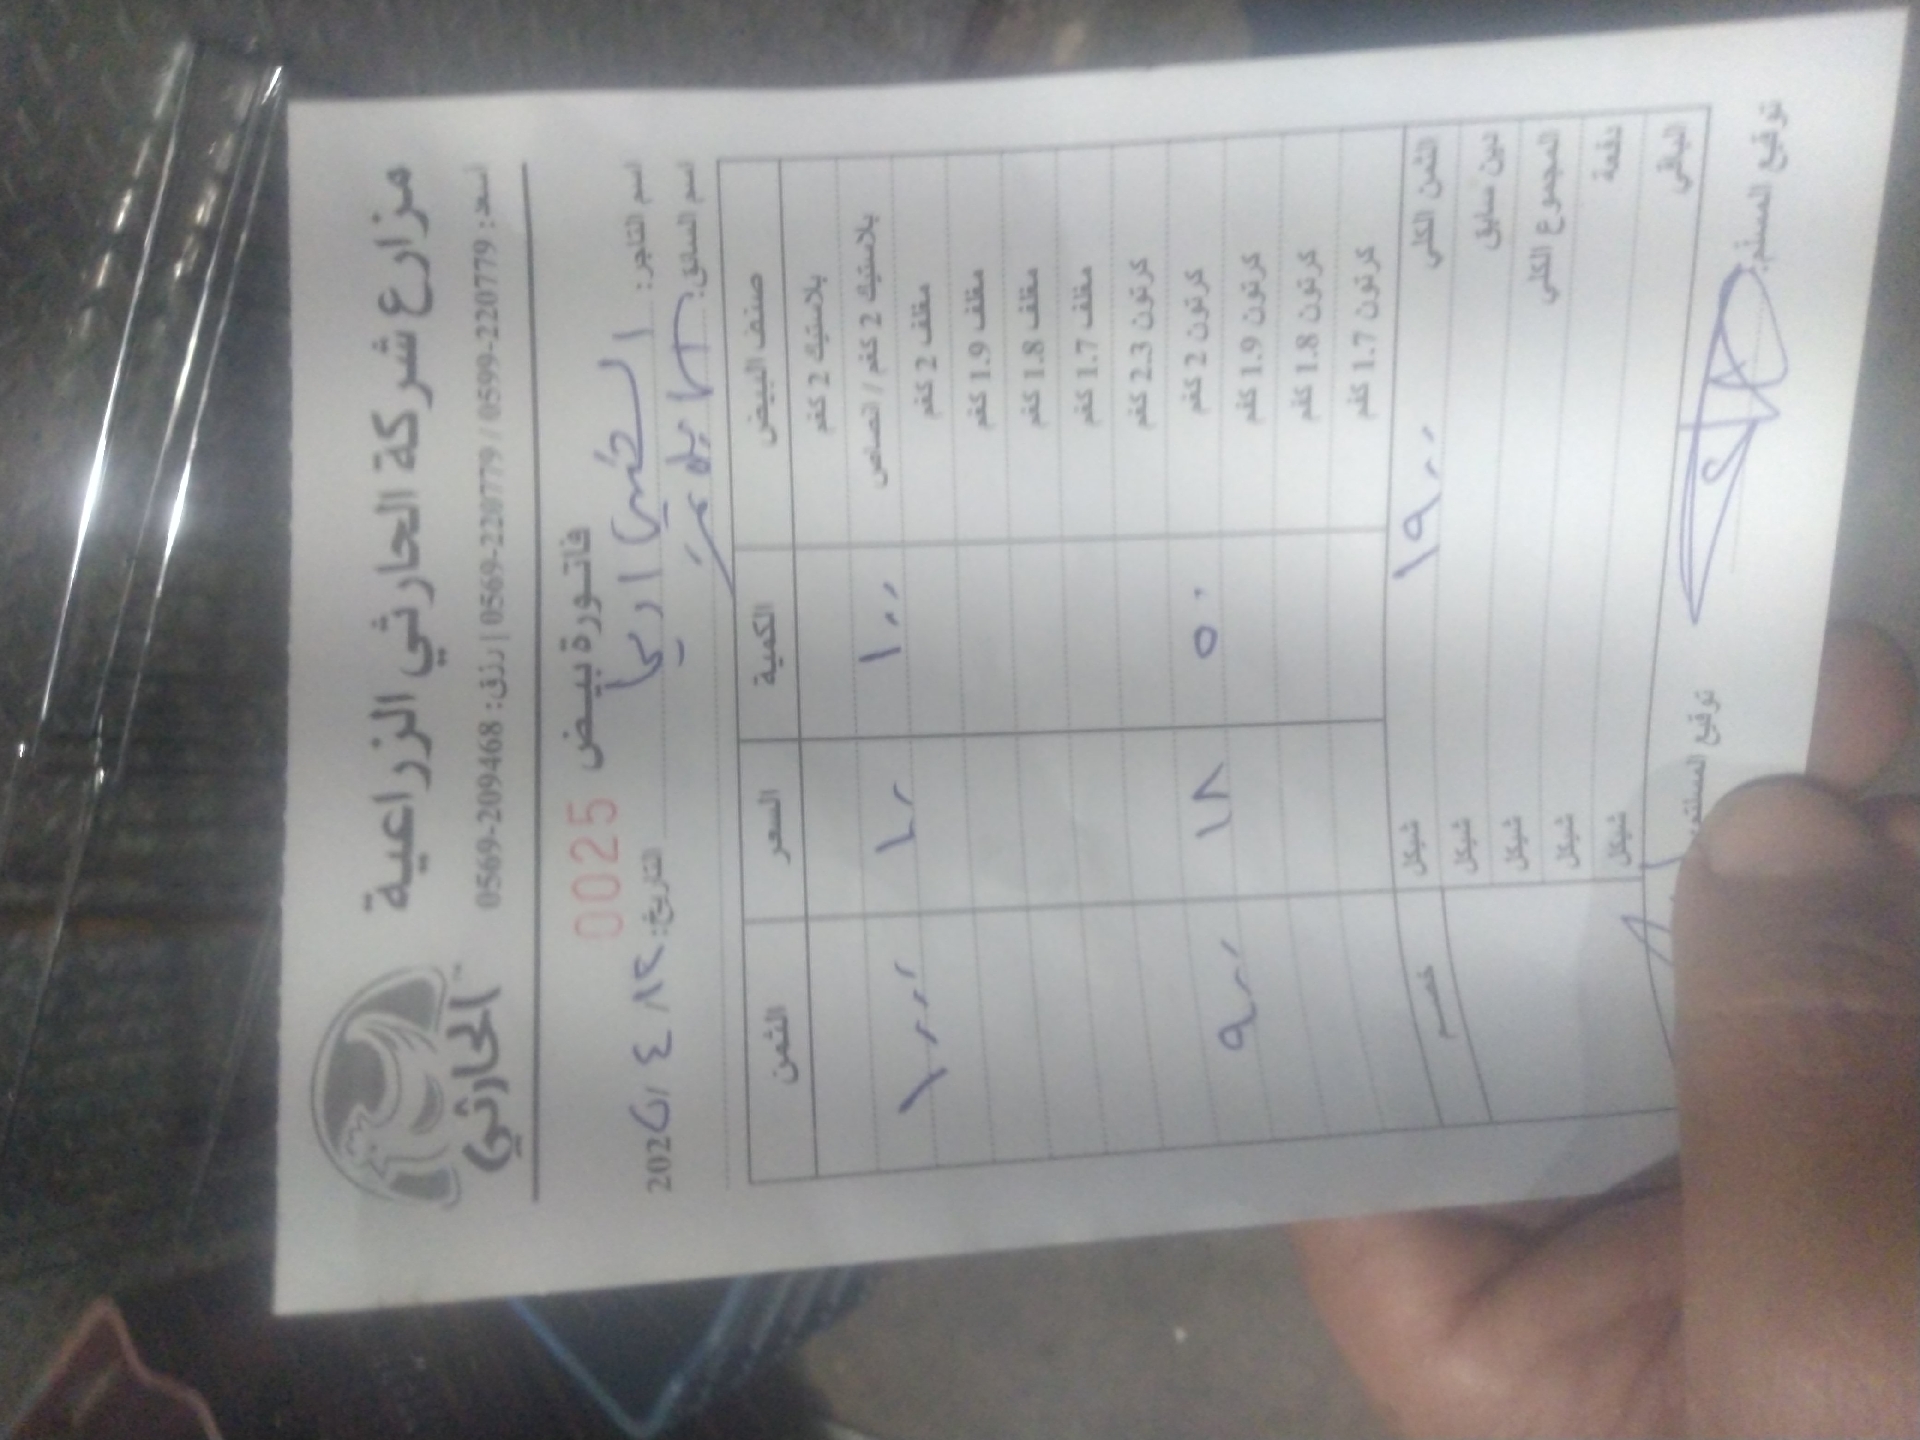 مزارع شركة الحارثي الزراعية
الحارثي
أسعد: 0599-220779 / 0569-220779 | رزق: 0569-209468
فاتورة بيض
0025
اسم التاجر:
اريحا
التاريخ: ١٢ / ٤ / 202٦
اسم السائق:
صنف البيض الكمية السعر الثمن
بلاستيك 2 كغم
بلاستيك 2 كغم / الصاص ١٠٠ ١٠ ١٠٠٠
مغلف 2 كغم
مغلف 1.9 كغم
مغلف 1.8 كغم
مغلف 1.7 كغم
كرتون 2.3 كغم
كرتون 2 كغم ٥٠ ١٨ ٩٠٠
كرتون 1.9 كغم
كرتون 1.8 كغم
كرتون 1.7 كغم
الثمن الكلي ١٩٠٠ شيكل خصم
دين سابق شيكل
المجموع الكلي شيكل
دفعة شيكل
الباقي شيكل
توقيع المسلم: توقيع المستلم